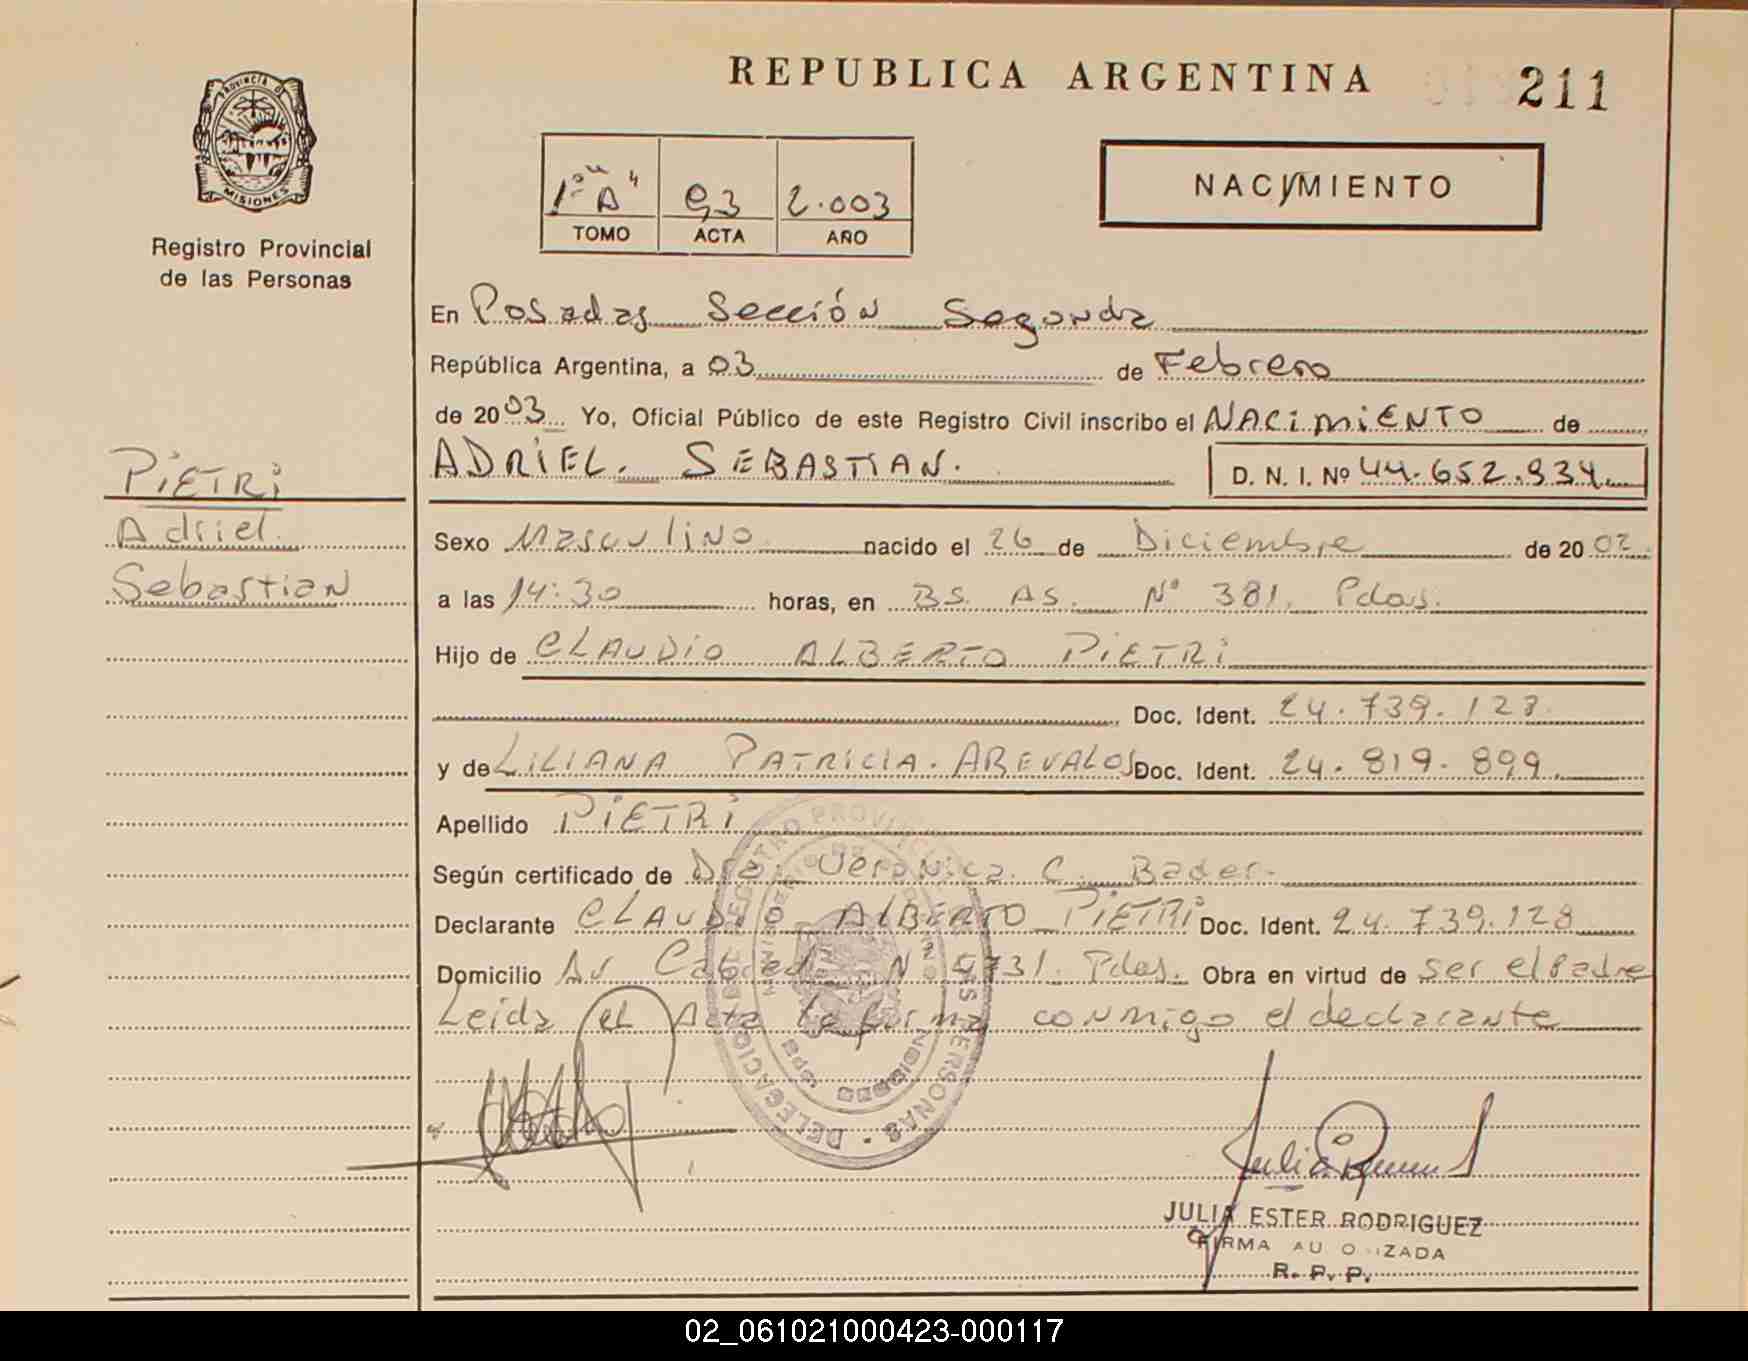 REPUBLICA ARGENTINA 211
PROVINCIA DE MISIONES
Registro Provincial
de las Personas
1º "A" 93 2.003
TOMO ACTA AÑO
NACIMIENTO
En Posadas Sección Segunda
República Argentina, a 03 de Febrero
de 2003 Yo, Oficial Público de este Registro Civil inscribo el NACIMIENTO de
ADRIEL. SEBASTIAN. D. N. I. Nº 44.652.934
PIETRI
Adriel
Sebastian
Sexo Masculino nacido el 26 de Diciembre de 2002
a las 14:30 horas, en Bs. As. Nº 381. Pdas.
Hijo de CLAUDIO ALBERTO PIETRI
Doc. Ident. 24.739.128
y de LILIANA PATRICIA. AREVALOS Doc. Ident. 24.819.899
Apellido PIETRI
Según certificado de Dra. Veronica C. Bader-
Declarante CLAUDIO ALBERTO PIETRI Doc. Ident. 24.739.128
Domicilio Av. N 4731. Pdas. Obra en virtud de ser el padre
Leida el Acta la firma conmigo el declarante
DELEGACION DEL REGISTRO PROVINCIAL DE LAS PERSONAS
JULIA ESTER RODRIGUEZ
FIRMA AUTORIZADA
R. P. P.
02_061021000423-000117